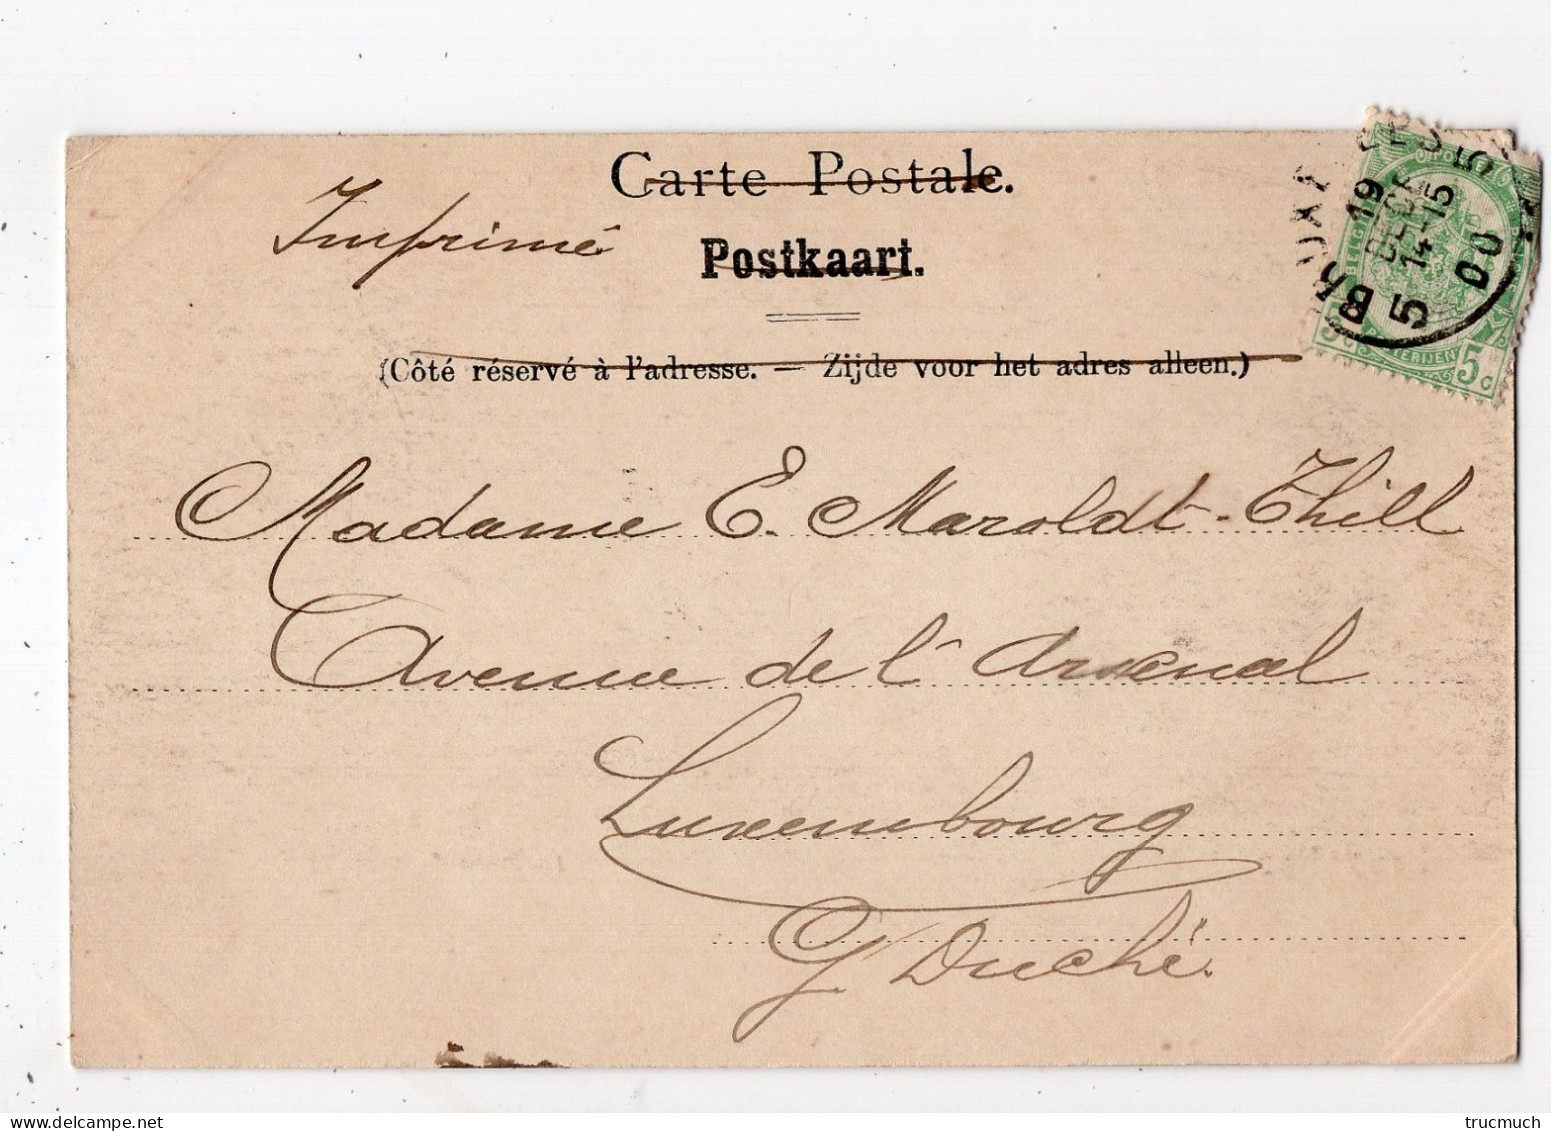 Carte Postale.
Imprimé
Postkaart.
(Côté réservé à l'adresse. — Zijde voor het adres alleen.)
19
14-15
5
POSTERIJEN
5c
Madame E. Maroldt-Thill
Avenue de l'Arsenal
Luxembourg
G' Duché.
trucmuch